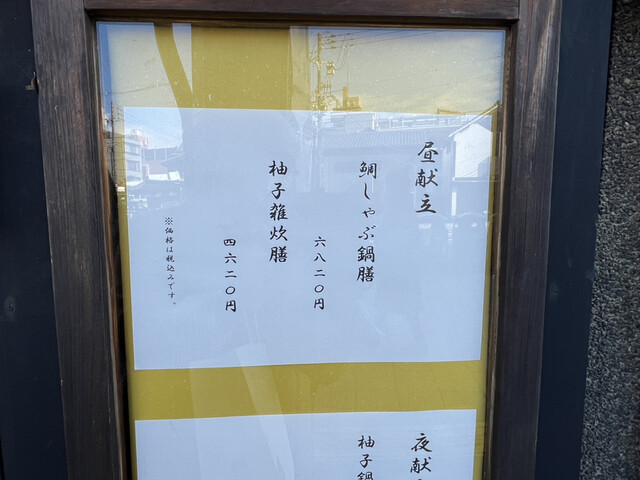 昼献立
鯛しゃぶ鍋膳
六八二〇円
柚子雑炊膳
四六二〇円
※価格は税込みです。
夜献
柚子鍋